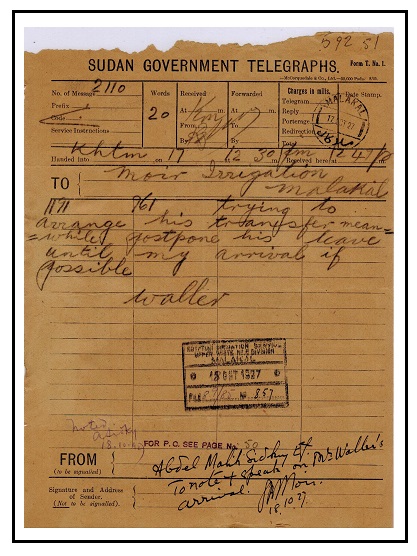 592 51
SUDAN GOVERNMENT TELEGRAPHS. Form T. No. 1.
No. of Message 2110 Words Received Forwarded Charges in mills. Date Stamp.
Prefix 20 At m. At m. Telegram
Code From To Reply
Service Instructions By By Porterage
Redirection
Total
MALAKAL
Khtm on 17 12 30
Handed into Received here at
TO Moir Irrigation
Malakal
1171 761 trying to
arrange his transfer mean=
=while postpone his leave
until my arrival if
possible
Waller
EGYPTIAN IRRIGATION SERVICE
UPPER WHITE NILE DIVISION
MALAKAL
18 OCT 1927
No. 857
Noted
18.10.27
FOR P.C. SEE PAGE No. 50
FROM
(to be signalled)
Abdel Malik Sidky Eff
To note & speak on Mr Waller's
arrival.
Moir.
18.10.27.
Signature and Address
of Sender.
(Not to be signalled).